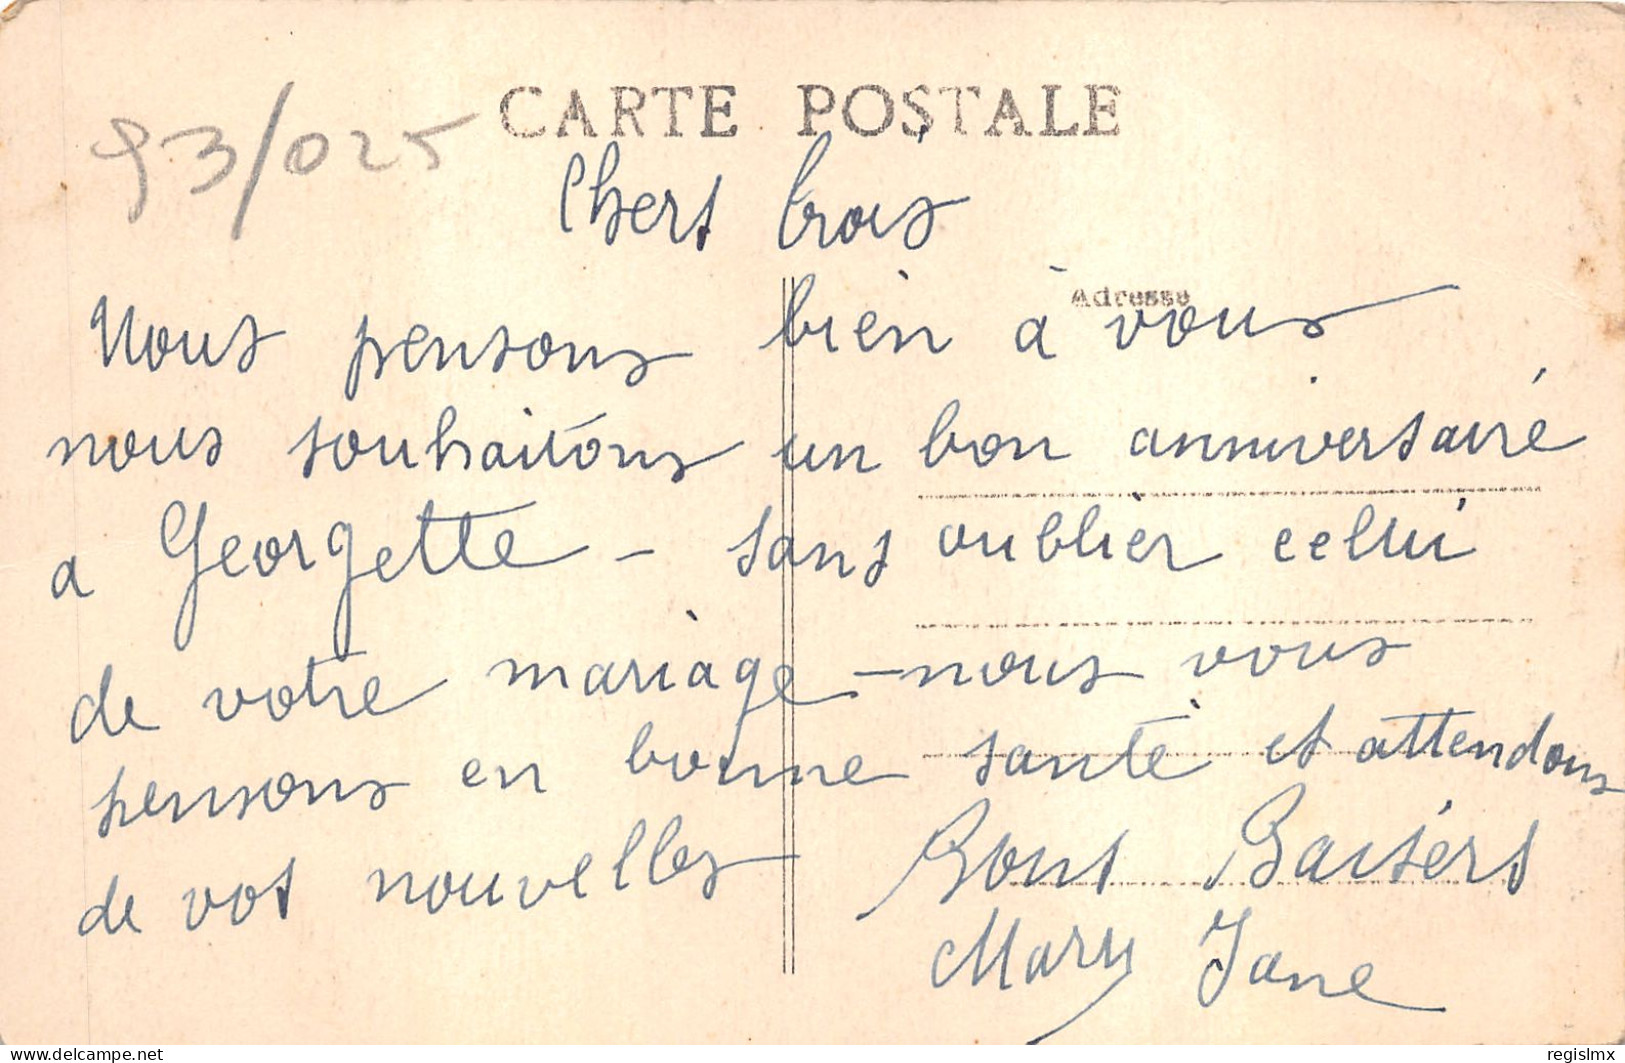 CARTE POSTALE
93/025
Chers trois
Adresse
Nous pensons bien à vous
nous souhaitons un bon anniversaire
a Georgette - sans oublier celui
de votre mariage - nous vous
pensons en bonne santé et attendons
de vos nouvelles Bons Baisers
Mary Jane
delcampe.net
regislmx